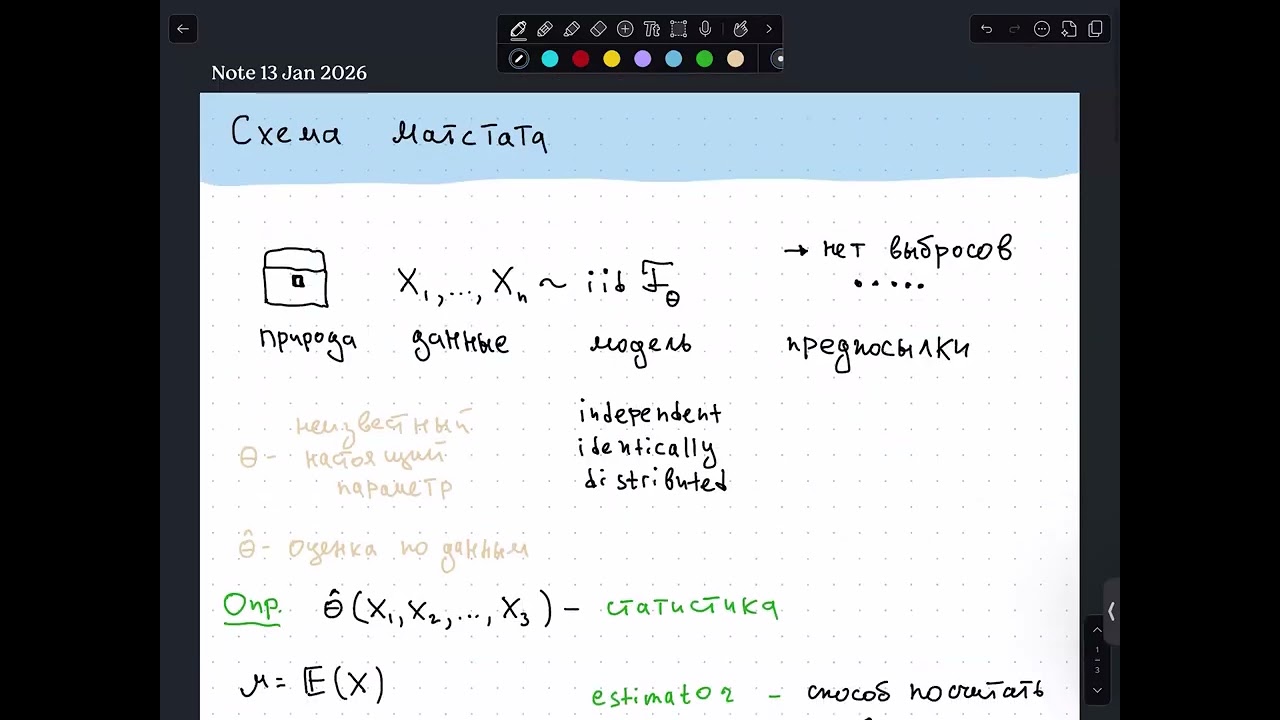 Tt
Note 13 Jan 2026
Схема матстата
→ нет выбросов
.....
X₁,..., Xₙ ~ iid F_θ
природа данные модель предпосылки
independent
identically
distributed
неизвестный
θ - настоящий
параметр
θ̂ - оценка по данным
Опр. θ̂(X₁, X₂, ..., X₃) - статистика
μ = 𝔼(X)
estimator - способ посчитать
1
3